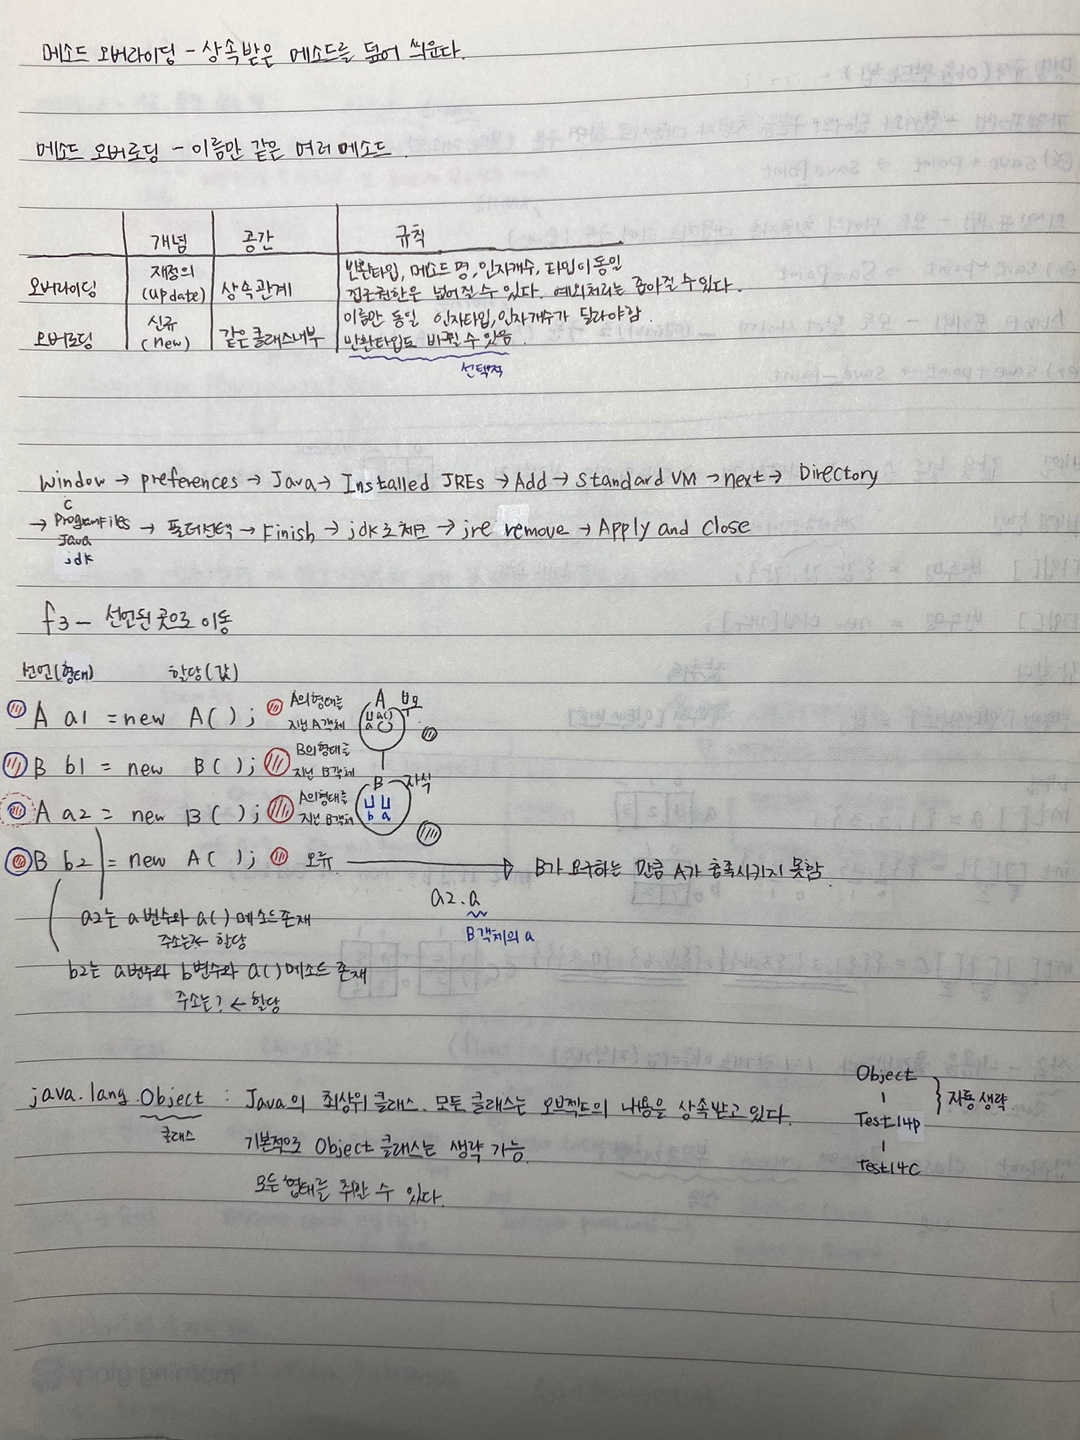 메소드 오버라이딩 - 상속받은 메소드를 덮어 씌운다.
메소드 오버로딩 - 이름만 같은 여러 메소드.
개념 공간 규칙
오버라이딩 재정의 (update) 상속관계 반환타입, 메소드명, 인자개수, 타입이 동일
접근권한은 넓어질 수 있다. 예외처리는 좁아질 수 있다.
오버로딩 신규 (new) 같은 클래스 내부 이름만 동일 인자타입, 인자개수가 달라야함.
반환타입도 바뀔 수 있음
선택적
window → preferences → Java → Installed JREs → Add → Standard VM → next → Directory
→ C Program Files Java jdk → 폴더선택 → Finish → jdk로 체크 → jre remove → Apply and Close
f3 - 선언된 곳으로 이동
선언(형태) 할당(값)
A a1 = new A(); A의 형태를 지닌 A객체
B b1 = new B(); B의 형태를 지닌 B객체
A a2 = new B(); A의 형태를 지닌 B객체
B b2 = new A(); 오류 → B가 요구하는 만큼 A가 충족시키지 못함.
A 부모
a a()
B 자식
b a
a2.a
B객체의 a
a2는 a변수와 a() 메소드존재
주소는? ← 할당
b2는 a변수와 b변수와 a() 메소드 존재
주소는? ← 할당
java.lang.Object : Java의 최상위 클래스. 모든 클래스는 오브젝트의 내용을 상속받고 있다.
클래스
기본적으로 Object 클래스는 생략 가능.
모든 형태를 취할 수 있다.
Object
Test14p
Test14C
자동 생략.